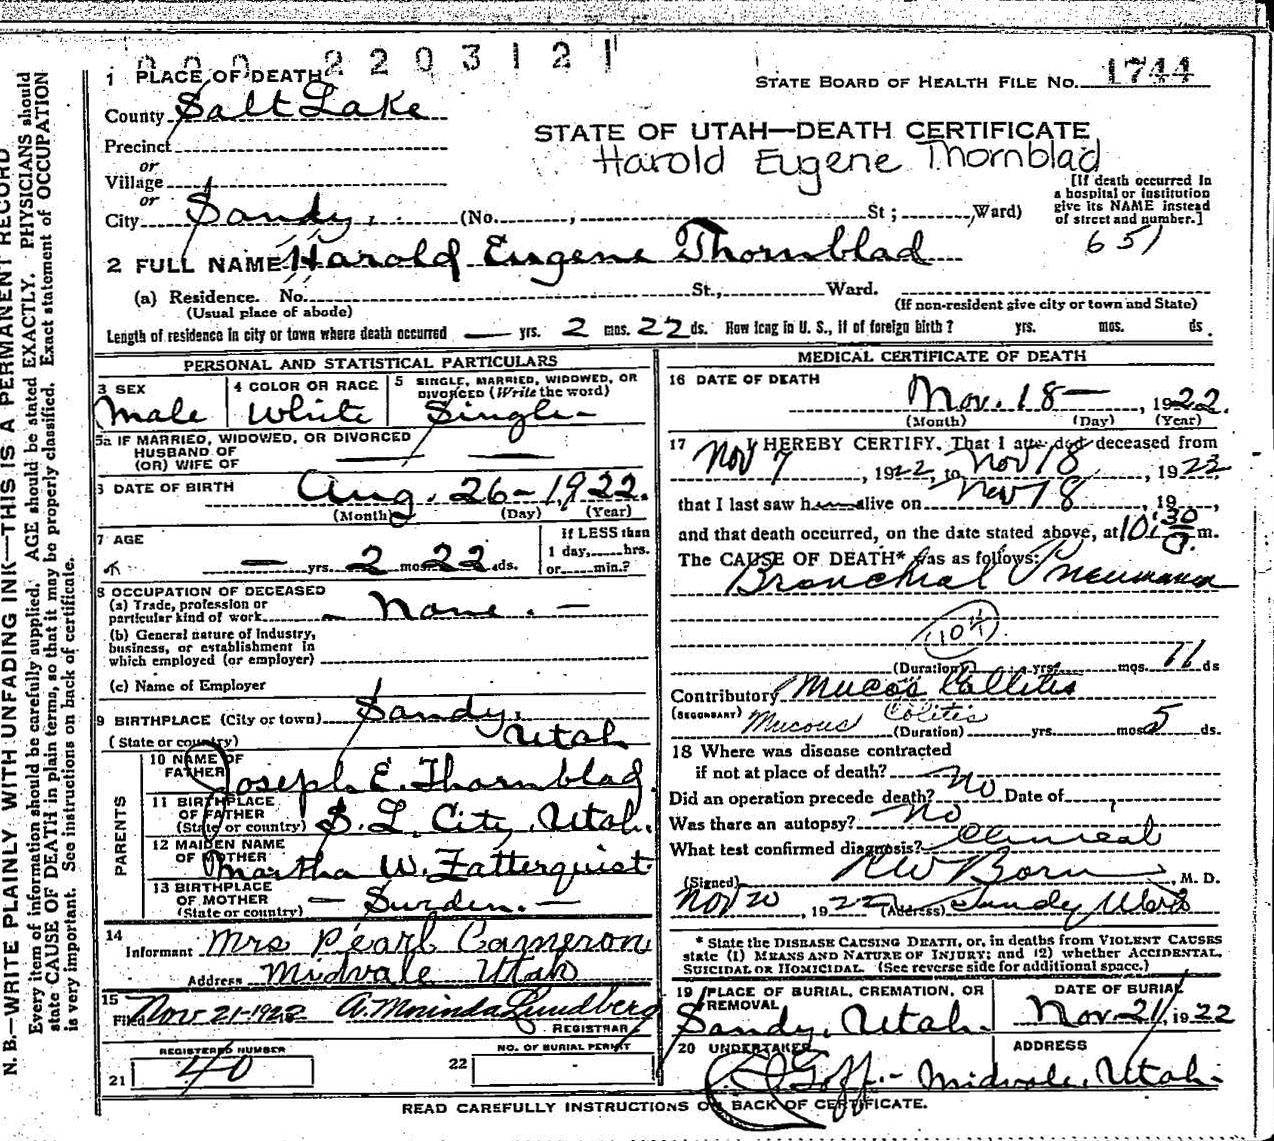 0 0 0 2 2 0 3 1 2 1
1 PLACE OF DEATH
STATE BOARD OF HEALTH FILE NO. 1744
County Salt Lake
STATE OF UTAH—DEATH CERTIFICATE
Precinct
Harold Eugene Thornblad
or
Village
or
City Sandy, (No. , St ; , Ward)
[If death occurred in
a hospital or institution
give its NAME instead
of street and number.]
651
2 FULL NAME Harold Eugene Thornblad
(a) Residence. No. St., Ward.
(Usual place of abode)
(If non-resident give city or town and State)
Length of residence in city or town where death occurred — yrs. 2 mos. 22 ds. How long in U. S., if of foreign birth ? yrs. mos. ds.
PERSONAL AND STATISTICAL PARTICULARS
3 SEX
Male
4 COLOR OR RACE
White
5 SINGLE, MARRIED, WIDOWED, OR
DIVORCED (Write the word)
Single
5a IF MARRIED, WIDOWED, OR DIVORCED
HUSBAND OF
(OR) WIFE OF
6 DATE OF BIRTH Aug. 26-1922.
(Month) (Day) (Year)
7 AGE
— yrs. 2 mos 22 ds.
If LESS than
1 day, hrs.
or min.?
8 OCCUPATION OF DECEASED
(a) Trade, profession or
particular kind of work None. —
(b) General nature of Industry,
business, or establishment in
which employed (or employer)
(c) Name of Employer
9 BIRTHPLACE (City or town) Sandy,
(State or country) Utah
PARENTS
10 NAME OF
FATHER Joseph E. Thornblad
11 BIRTHPLACE
OF FATHER
(State or country) S. L. City, Utah.
12 MAIDEN NAME
OF MOTHER
Martha W. Zatterquist
13 BIRTHPLACE
OF MOTHER
(State or country) — Sweden. —
14
Informant Mrs Pearl Cameron
Address Midvale Utah
15
Filed Nov 21-1922 A. Morinda Lundberg
REGISTRAR
REGISTERED NUMBER
21 40
NO. OF BURIAL PERMIT
22
MEDICAL CERTIFICATE OF DEATH
16 DATE OF DEATH
Nov. 18 — , 1922.
(Month) (Day) (Year)
17 I HEREBY CERTIFY. That I attended deceased from
Nov 7 , 1922, to Nov 18 , 1922
that I last saw h alive on Nov 18 , 19 ,
and that death occurred, on the date stated above, at 10:30 a. m.
The CAUSE OF DEATH* was as follows:
Bronchial Pneumonia
(Duration) yrs. mos. 11 ds
Contributory Mucos Collitis
(SECONDARY) Mucous Colitis
(Duration) yrs. mos 5 ds.
18 Where was disease contracted
if not at place of death? No
Did an operation precede death? No Date of
Was there an autopsy? No
What test confirmed diagnosis? Clinical
(Signed) RW Born M. D.
Nov 20 , 1922 (Address) Sandy Utah
* State the DISEASE CAUSING DEATH, or, in deaths from VIOLENT CAUSES
state (1) MEANS AND NATURE OF INJURY; and (2) whether ACCIDENTAL,
SUICIDAL OR HOMICIDAL. (See reverse side for additional space.)
19 PLACE OF BURIAL, CREMATION, OR
REMOVAL
Sandy, Utah.
DATE OF BURIAL
Nov. 21, 1922
20 UNDERTAKER
Goff. -
ADDRESS
Midvale, Utah.
READ CAREFULLY INSTRUCTIONS ON BACK OF CERTIFICATE.
N. B.—WRITE PLAINLY WITH UNFADING INK—THIS IS A PERMANENT RECORD
Every item of information should be carefully supplied. AGE should be stated EXACTLY. PHYSICIANS should
state CAUSE OF DEATH in plain terms, so that it may be properly classified. Exact statement of OCCUPATION
is very important. See instructions on back of certificate.